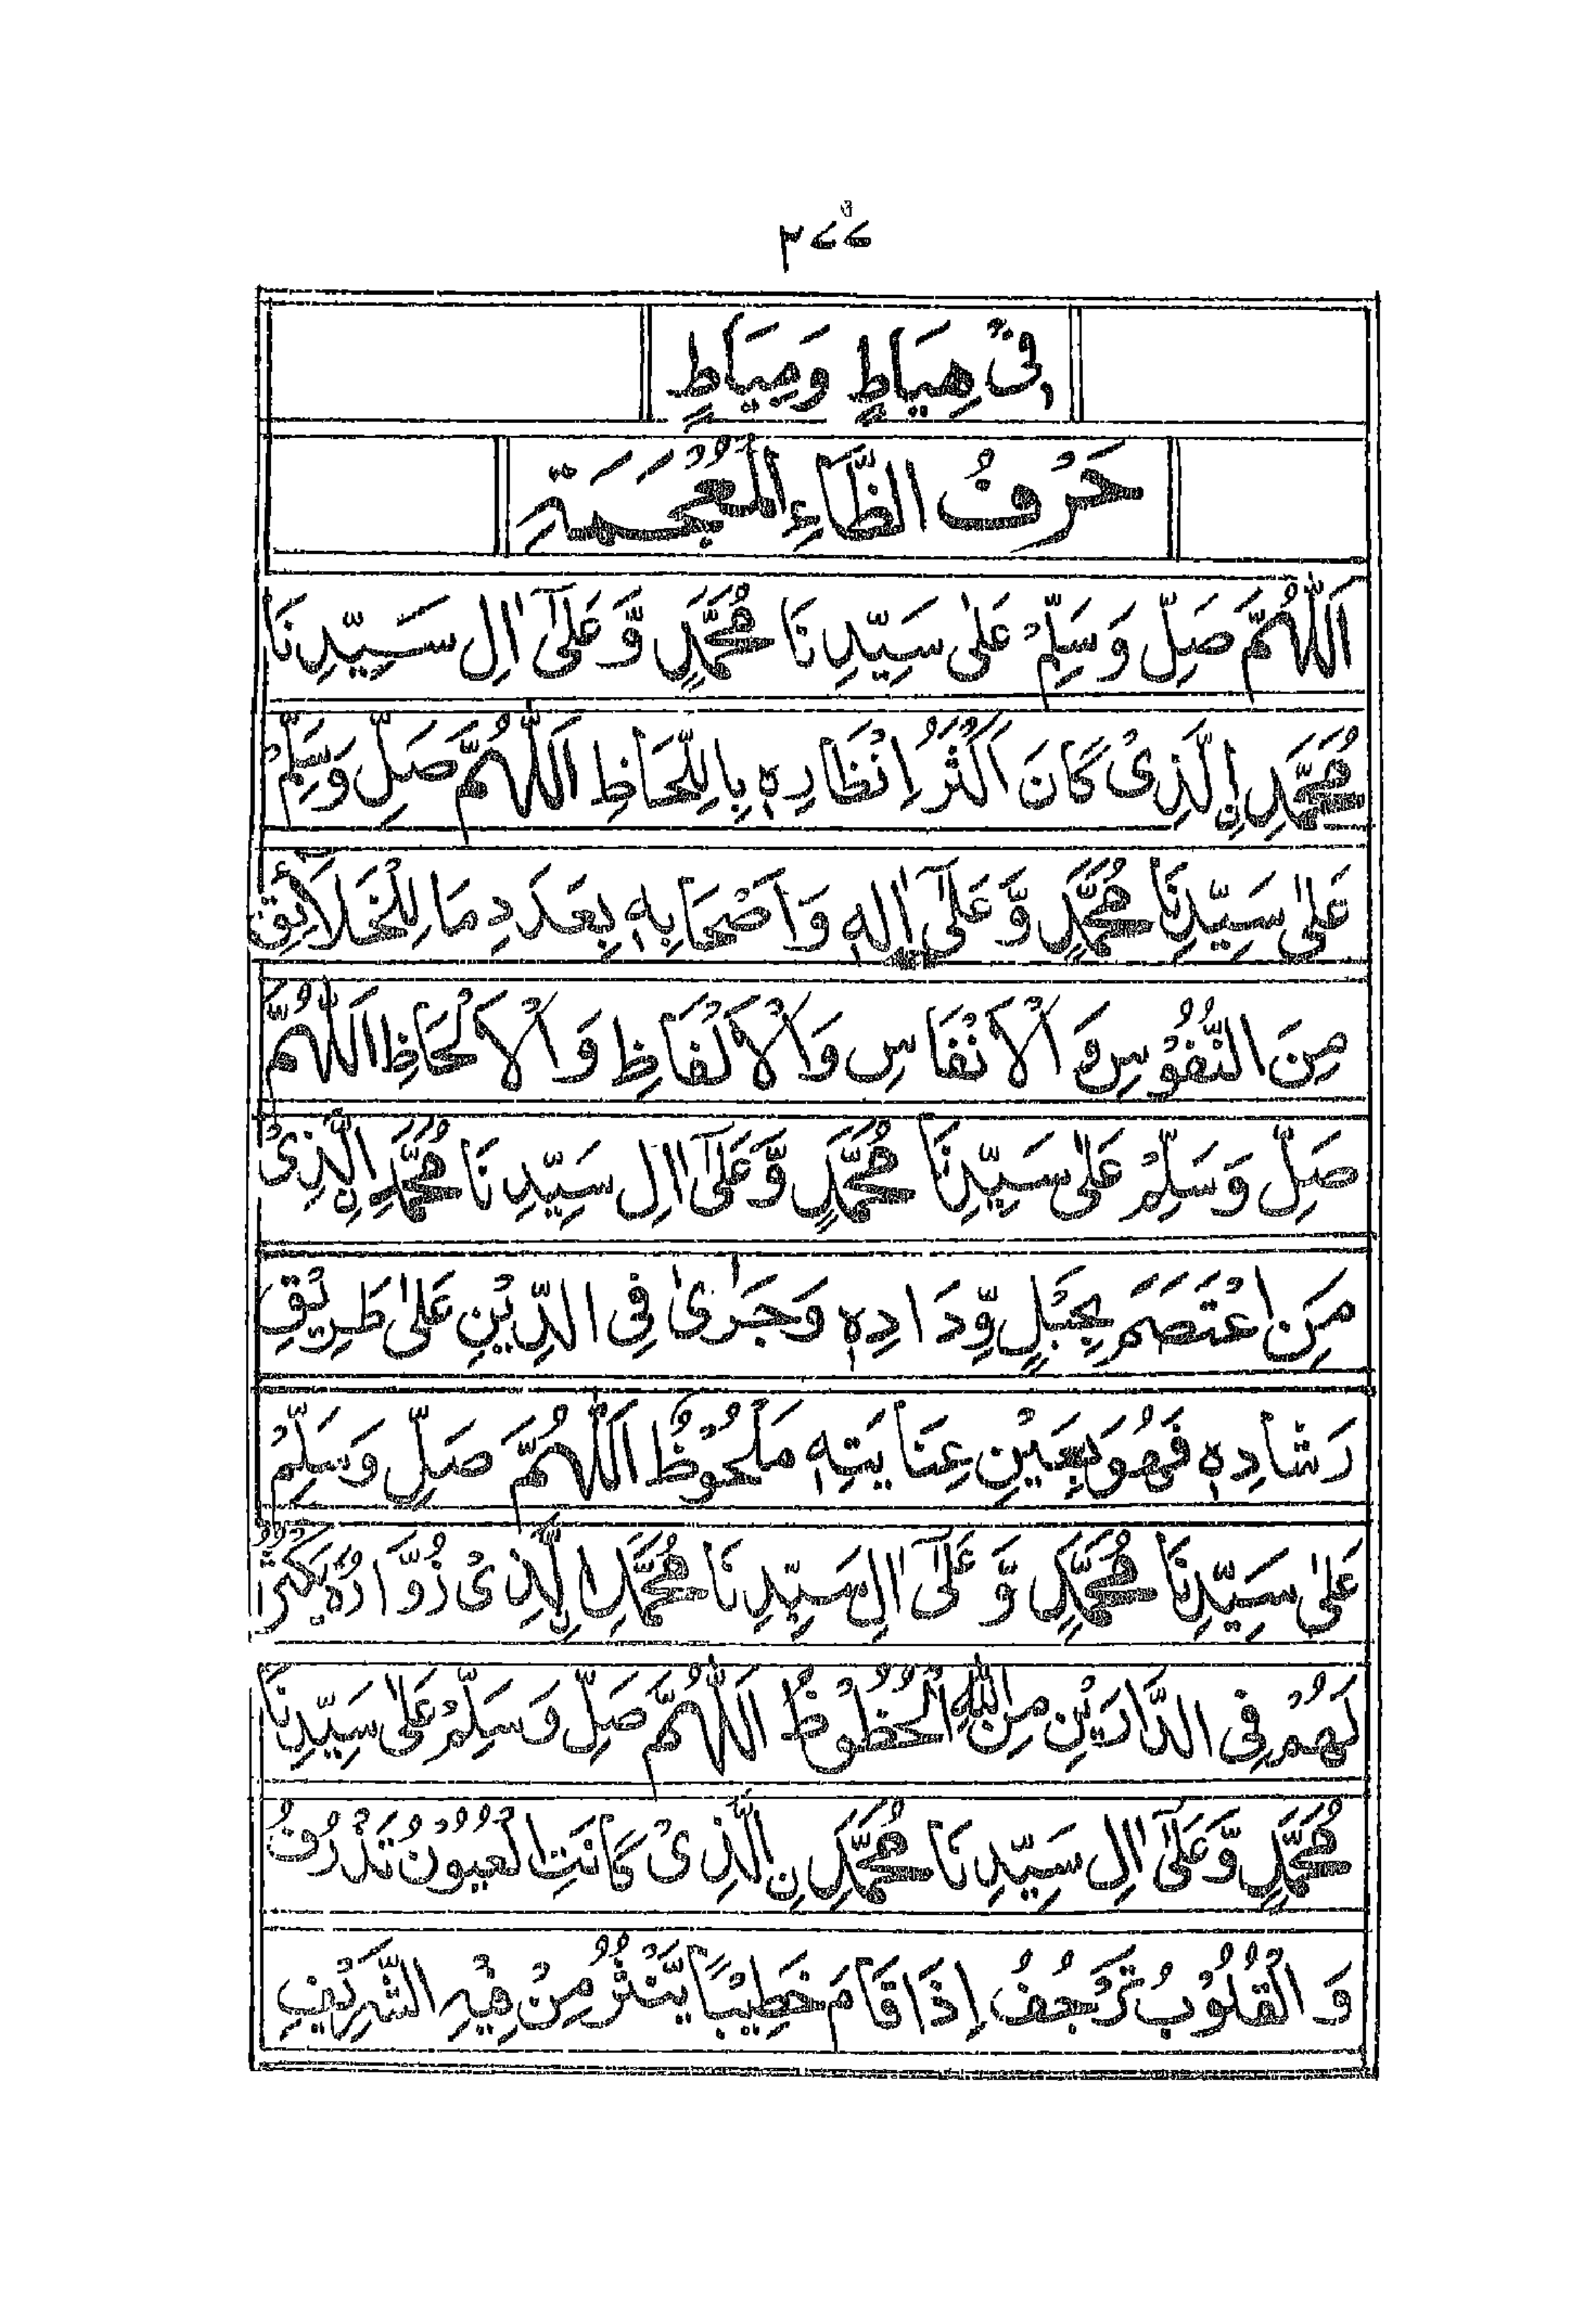 ٢٧٧
فِىْ هِيَاطٍ وَمِيَاطٍ
حَرْفُ الظَّاءِ الْمُعْجَمَةِ
اَللّٰهُمَّ صَلِّ وَسَلِّمْ عَلٰى سَيِّدِنَا مُحَمَّدٍ وَّعَلٰٓى اٰلِ سَيِّدِنَا
مُحَمَّدِ اِلَّذِىْ كَانَ اَكْثَرُ اِنْظَارِهٖ بِاللِّحَاظِ اَللّٰهُمَّ صَلِّ وَسَلِّمْ
عَلٰى سَيِّدِنَا مُحَمَّدٍ وَّعَلٰٓى اٰلِهٖ وَاَصْحَابِهٖ بِعَدَدِ مَا لِلْخَلَآئِقِ
مِنَ النُّفُوْسِ وَالْاَنْفَاسِ وَالْاَلْفَاظِ وَالْاَلْحَاظِ اَللّٰهُمَّ
صَلِّ وَسَلِّمْ عَلٰى سَيِّدِنَا مُحَمَّدٍ وَّعَلٰٓى اٰلِ سَيِّدِنَا مُحَمَّدِ اِلَّذِىْ
مَنِ اعْتَصَمَ بِحَبْلِ وِّدَادِهٖ وَجَرٰى فِى الدِّيْنِ عَلٰى طَرِيْقِ
رَشَادِهٖ فَهُوَ بِعَيْنِ عِنَايَتِهٖ مَلْحُوْظٌ اَللّٰهُمَّ صَلِّ وَسَلِّمْ
عَلٰى سَيِّدِنَا مُحَمَّدٍ وَّعَلٰٓى اٰلِ سَيِّدِنَا مُحَمَّدِ اِلَّذِىْ زُوَّارُهٗ يَكْثُرُ
لَهُمْ فِى الدَّارَيْنِ مِنَ اللّٰهِ الْحُظُوْظُ اَللّٰهُمَّ صَلِّ وَسَلِّمْ عَلٰى سَيِّدِنَا
مُحَمَّدٍ وَّعَلٰٓى اٰلِ سَيِّدِنَا مُحَمَّدِ نِ الَّذِىْ كَانَتِ الْعُيُوْنُ تَذْرُفُ
وَالْقُلُوْبُ تَرْجُفُ اِذَا قَامَ خَطِيْبًا يَّنْثُرُ مِنْ فِيْهِ الشَّرِيْفِ